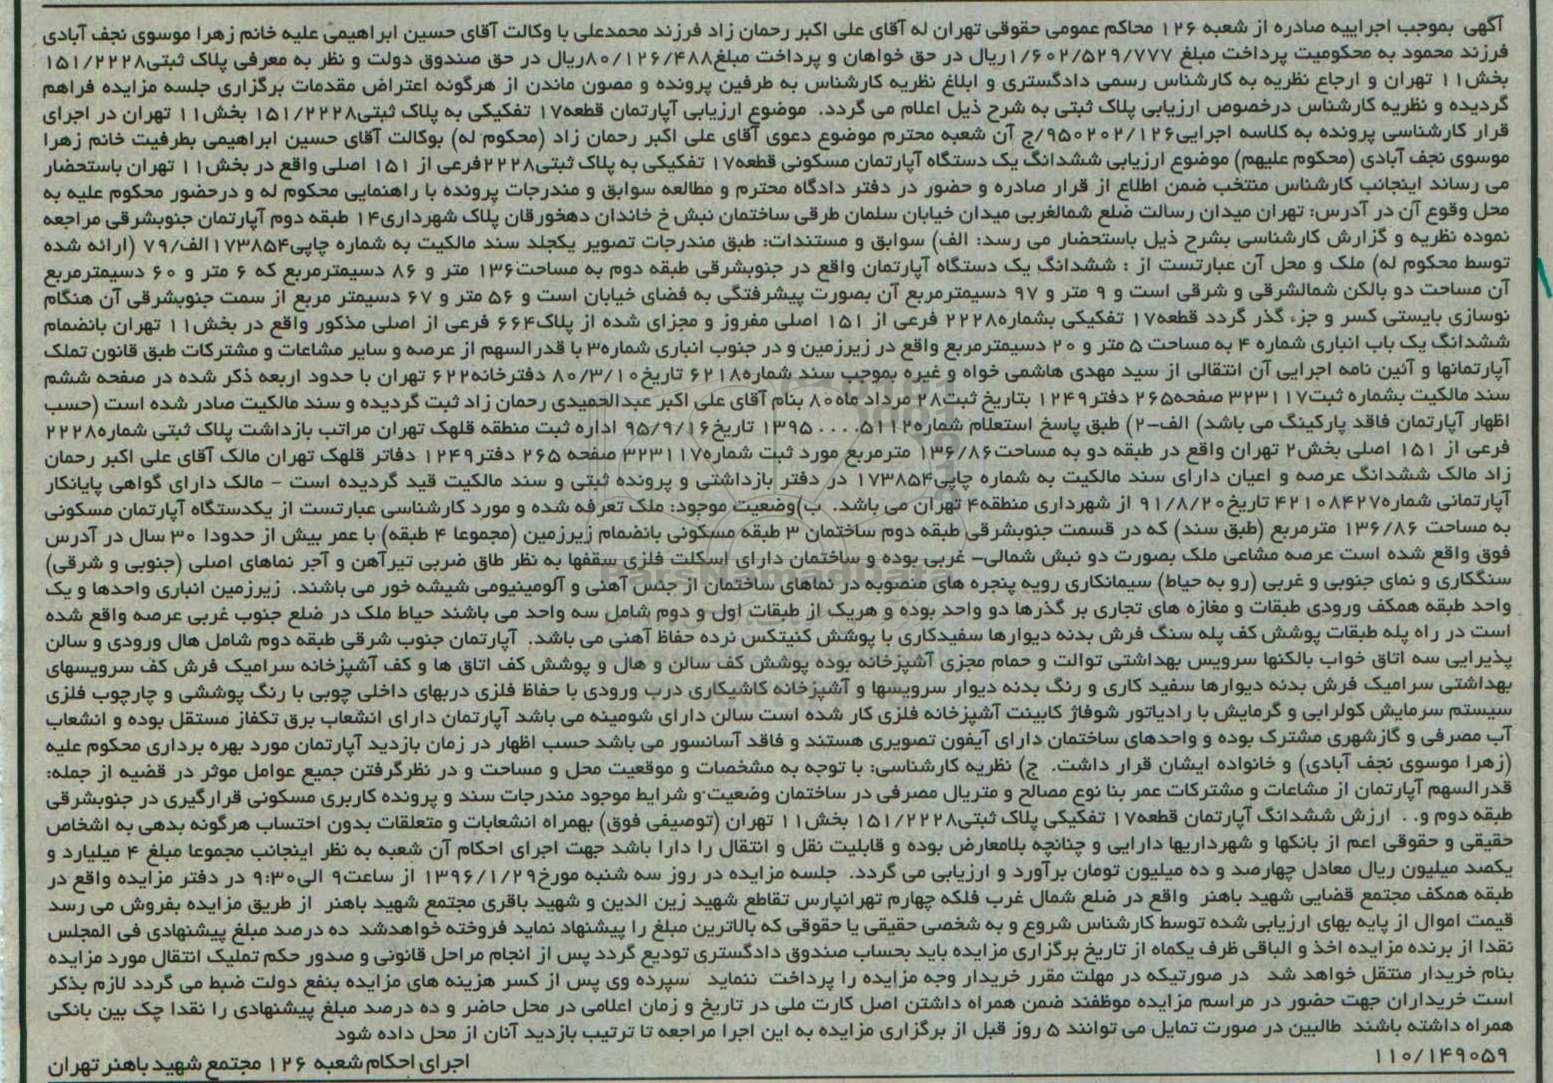 آگهی بموجب اجراییه صادره از شعبه ۱۲۶ محاکم عمومی حقوقی تهران له آقای علی اکبر رحمان زاد فرزند محمدعلی با وکالت آقای حسین ابراهیمی علیه خانم زهرا موسوی نجف آبادی
فرزند محمود به محکومیت پرداخت مبلغ ۱/۶۰۲/۵۲۹/۷۷۷ریال در حق خواهان و پرداخت مبلغ۸۰/۱۲۶/۴۸۸ریال در حق صندوق دولت و نظر به معرفی پلاک ثبتی۱۵۱/۲۲۲۸
بخش۱۱ تهران و ارجاع نظریه به کارشناس رسمی دادگستری و ابلاغ نظریه کارشناس به طرفین پرونده و مصون ماندن از هرگونه اعتراض مقدمات برگزاری جلسه مزایده فراهم
گردیده و نظریه کارشناس درخصوص ارزیابی پلاک ثبتی به شرح ذیل اعلام می گردد. موضوع ارزیابی آپارتمان قطعه۱۷ تفکیکی به پلاک ثبتی۱۵۱/۲۲۲۸ بخش۱۱ تهران در اجرای
قرار کارشناسی پرونده به کلاسه اجرایی۹۵۰۲۰۲/۱۲۶/ج آن شعبه محترم موضوع دعوی آقای علی اکبر رحمان زاد (محکوم له) بوکالت آقای حسین ابراهیمی بطرفیت خانم زهرا
موسوی نجف آبادی (محکوم علیهم) موضوع ارزیابی ششدانگ یک دستگاه آپارتمان مسکونی قطعه۱۷ تفکیکی به پلاک ثبتی۲۲۲۸فرعی از ۱۵۱ اصلی واقع در بخش۱۱ تهران باستحضار
می رساند اینجانب کارشناس منتخب ضمن اطلاع از قرار صادره و حضور در دفتر دادگاه محترم و مطالعه سوابق و مندرجات پرونده با راهنمایی محکوم له و درحضور محکوم علیه به
محل وقوع آن در آدرس: تهران میدان رسالت ضلع شمالغربی میدان خیابان سلمان طرقی ساختمان نبش خ خاندان دهخورقان پلاک شهرداری۱۴ طبقه دوم آپارتمان جنوبشرقی مراجعه
نموده نظریه و گزارش کارشناسی بشرح ذیل باستحضار می رسد: الف) سوابق و مستندات: طبق مندرجات تصویر یکجلد سند مالکیت به شماره چاپی۱۷۳۸۵۴الف/۷۹ (ارائه شده
توسط محکوم له) ملک و محل آن عبارتست از : ششدانگ یک دستگاه آپارتمان واقع در جنوبشرقی طبقه دوم به مساحت۱۳۶ متر و ۸۶ دسیمترمربع که ۶ متر و ۶۰ دسیمترمربع
آن مساحت دو بالکن شمالشرقی و شرقی است و ۹ متر و ۹۷ دسیمترمربع آن بصورت پیشرفتگی به فضای خیابان است و ۵۶ متر و ۶۷ دسیمتر مربع از سمت جنوبشرقی آن هنگام
نوسازی بایستی کسر و جزء گذر گردد قطعه۱۷ تفکیکی بشماره۲۲۲۸ فرعی از ۱۵۱ اصلی مفروز و مجزای شده از پلاک۶۶۴ فرعی از اصلی مذکور واقع در بخش۱۱ تهران بانضمام
ششدانگ یک باب انباری شماره ۴ به مساحت ۵ متر و ۲۰ دسیمترمربع واقع در زیرزمین و در جنوب انباری شماره۳ با قدرالسهم از عرصه و سایر مشاعات و مشترکات طبق قانون تملک
آپارتمانها و آئین نامه اجرایی آن انتقالی از سید مهدی هاشمی خواه و غیره بموجب سند شماره۶۲۱۸ تاریخ۸۰/۳/۱۰ دفترخانه۶۲۲ تهران با حدود اربعه ذکر شده در صفحه ششم
سند مالکیت بشماره ثبت۳۲۳۱۱۷ صفحه۲۶۵ دفتر۱۲۴۹ بتاریخ ثبت۲۸ مرداد ماه۸۰ بنام آقای علی اکبر عبدالحمیدی رحمان زاد ثبت گردیده و سند مالکیت صادر شده است (حسب
اظهار آپارتمان فاقد پارکینگ می باشد) الف-۲) طبق پاسخ استعلام شماره تاریخ۹۵/۹/۱۶ اداره ثبت منطقه قلهک تهران مراتب بازداشت پلاک ثبتی شماره۲۲۲۸
فرعی از ۱۵۱ اصلی بخش۲ تهران واقع در طبقه دو به مساحت۱۳۶/۸۶ مترمربع مورد ثبت شماره۳۲۳۱۱۷ صفحه ۲۶۵ دفتر۱۲۴۹ دفاتر قلهک تهران مالک آقای علی اکبر رحمان
زاد مالک ششدانگ عرصه و اعیان دارای سند مالکیت به شماره چاپی۱۷۳۸۵۴ در دفتر بازداشتی و پرونده ثبتی و سند مالکیت قید گردیده است - مالک دارای گواهی پایانکار
آپارتمانی شماره۴۲۱۰۸۴۲۷ تاریخ۹۱/۸/۲۰ از شهرداری منطقه۴ تهران می باشد. ب)وضعیت موجود: ملک تعرفه شده و مورد کارشناسی عبارتست از یکدستگاه آپارتمان مسکونی
به مساحت ۱۳۶/۸۶ مترمربع (طبق سند) که در قسمت جنوبشرقی طبقه دوم ساختمان ۳ طبقه مسکونی بانضمام زیرزمین (مجموعا ۴ طبقه) با عمر بیش از حدودا ۳۰ سال در آدرس
فوق واقع شده است عرصه مشاعی ملک بصورت دو نبش شمالی- غربی بوده و ساختمان دارای اسکلت فلزی سقفها به نظر طاق ضربی تیرآهن و آجر نماهای اصلی (جنوبی و شرقی)
سنگکاری و نمای جنوبی و غربی (رو به حیاط) سیمانکاری رویه پنجره های منصوبه در نماهای ساختمان از جنس آهنی و آلومینیومی شیشه خور می باشند. زیرزمین انباری واحدها و یک
واحد طبقه همکف ورودی طبقات و مغازه های تجاری بر گذرها دو واحد بوده و هریک از طبقات اول و دوم شامل سه واحد می باشند حیاط ملک در ضلع جنوب غربی عرصه واقع شده
است در راه پله طبقات پوشش کف پله سنگ فرش بدنه دیوارها سفیدکاری با پوشش کنیتکس نرده حفاظ آهنی می باشد. آپارتمان جنوب شرقی طبقه دوم شامل هال ورودی و سالن
پذیرایی سه اتاق خواب بالکنها سرویس بهداشتی توالت و حمام مجزی آشپزخانه بوده پوشش کف سالن و هال و پوشش کف اتاق ها و کف آشپزخانه سرامیک فرش کف سرویسهای
بهداشتی سرامیک فرش بدنه دیوارها سفید کاری و رنگ بدنه دیوار سرویسها و آشپزخانه کاشیکاری درب ورودی با حفاظ فلزی دربهای داخلی چوبی با رنگ پوششی و چارچوب فلزی
سیستم سرمایش کولرابی و گرمایش با رادیاتور شوفاژ کابینت آشپزخانه فلزی کار شده است سالن دارای شومینه می باشد آپارتمان دارای انشعاب برق تکفاز مستقل بوده و انشعاب
آب مصرفی و گازشهری مشترک بوده و واحدهای ساختمان دارای آیفون تصویری هستند و فاقد آسانسور می باشد حسب اظهار در زمان بازدید آپارتمان مورد بهره برداری محکوم علیه
(زهرا موسوی نجف آبادی) و خانواده ایشان قرار داشت. ج) نظریه کارشناسی: با توجه به مشخصات و موقعیت محل و مساحت و در نظرگرفتن جمیع عوامل موثر در قضیه از جمله:
قدرالسهم آپارتمان از مشاعات و مشترکات عمر بنا نوع مصالح و متریال مصرفی در ساختمان وضعیت و شرایط موجود مندرجات سند و پرونده کاربری مسکونی قرارگیری در جنوبشرقی
طبقه دوم و. . ارزش ششدانگ آپارتمان قطعه۱۷ تفکیکی پلاک ثبتی۱۵۱/۲۲۲۸ بخش۱۱ تهران (توصیفی فوق) بهمراه انشعابات و متعلقات بدون احتساب هرگونه بدهی به اشخاص
حقیقی و حقوقی اعم از بانکها و شهرداریها دارایی و چنانچه بلامعارض بوده و قابلیت نقل و انتقال را دارا باشد جهت اجرای احکام آن شعبه به نظر اینجانب مجموعا مبلغ ۴ میلیارد و
یکصد میلیون ریال معادل چهارصد و ده میلیون تومان برآورد و ارزیابی می گردد. جلسه مزایده در روز سه شنبه مورخ۱۳۹۶/۱/۲۹ از ساعت۹ الی۹:۳۰ در دفتر مزایده واقع در
طبقه همکف مجتمع قضایی شهید باهنر واقع در ضلع شمال غرب فلکه چهارم تهرانپارس تقاطع شهید زین الدین و شهید باقری مجتمع شهید باهنر از طریق مزایده بفروش می رسد
قیمت اموال از پایه بهای ارزیابی شده توسط کارشناس شروع و به شخصی حقیقی یا حقوقی که بالاترین مبلغ را پیشنهاد نماید فروخته خواهدشد ده درصد مبلغ پیشنهادی فی المجلس
نقدا از برنده مزایده اخذ و الباقی ظرف یکماه از تاریخ برگزاری مزایده باید بحساب صندوق دادگستری تودیع گردد پس از انجام مراحل قانونی و صدور حکم تملیک انتقال مورد مزایده
بنام خریدار منتقل خواهد شد در صورتیکه در مهلت مقرر خریدار وجه مزایده را پرداخت ننماید سپرده وی پس از کسر هزینه های مزایده بنفع دولت ضبط می گردد لازم بذکر
است خریداران جهت حضور در مراسم مزایده موظفند ضمن همراه داشتن اصل کارت ملی در تاریخ و زمان اعلامی در محل حاضر و ده درصد مبلغ پیشنهادی را نقدا چک بین بانکی
همراه داشته باشند طالبین در صورت تمایل می توانند ۵ روز قبل از برگزاری مزایده به این اجرا مراجعه تا ترتیب بازدید آنان از محل داده شود
۱۱۰/۱۴۹۰۵۹ اجرای احکام شعبه ۱۲۶ مجتمع شهید باهنر تهران